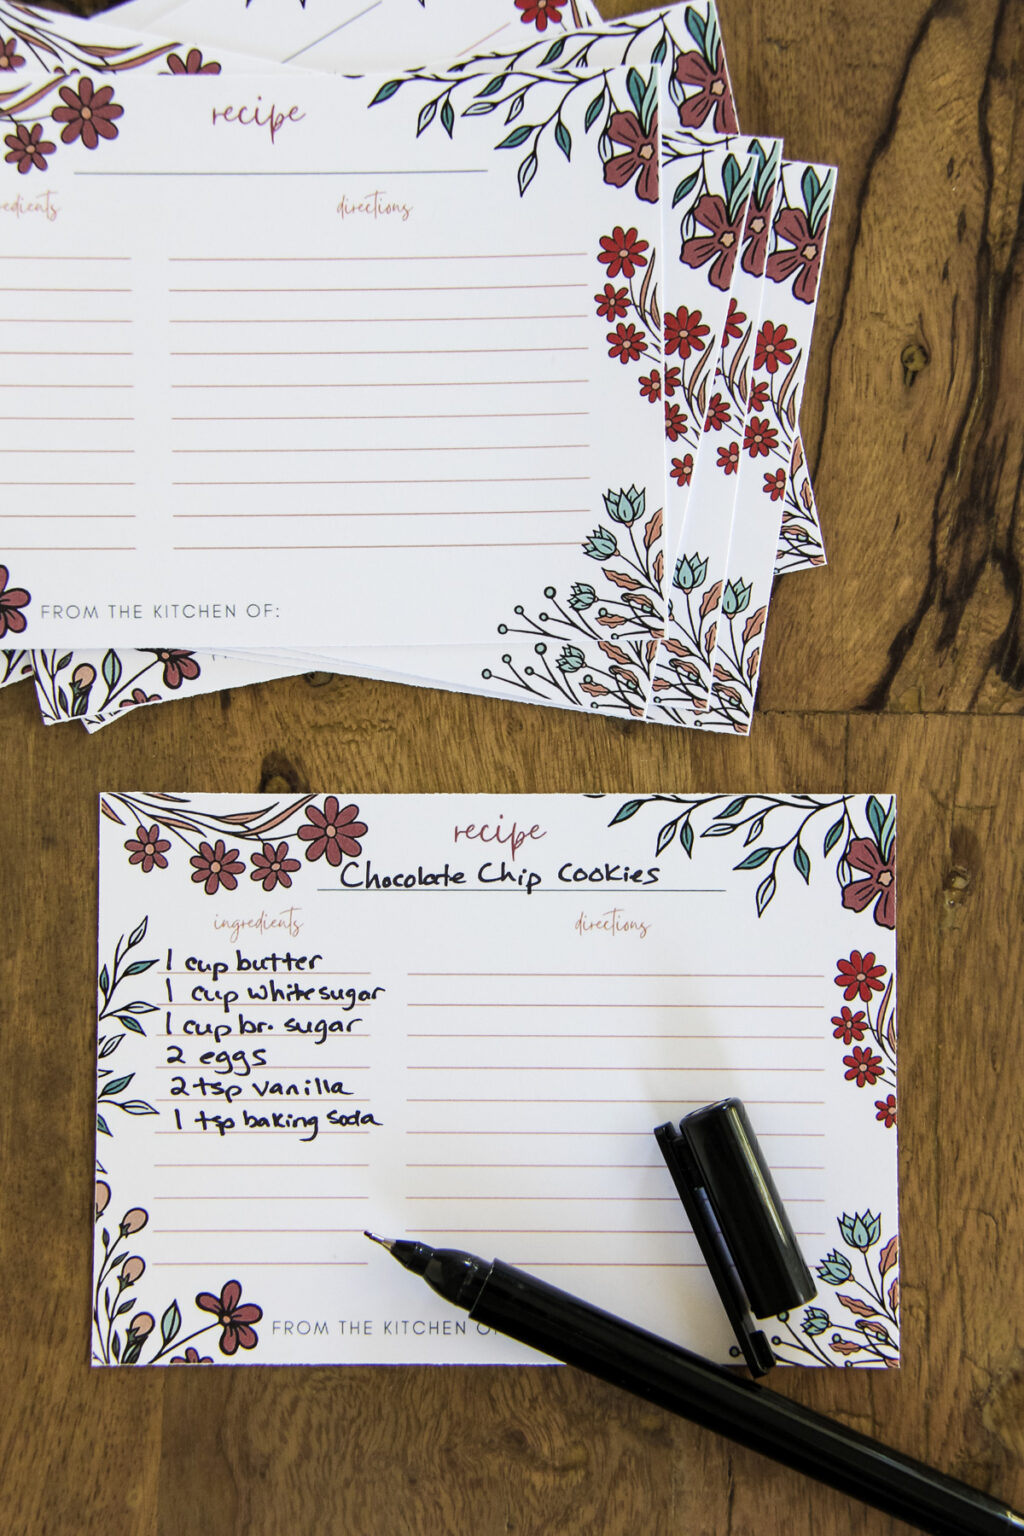 recipe
directions
FROM THE KITCHEN OF:
recipe
Chocolate Chip Cookies
ingredients
directions
1 cup butter
1 cup white sugar
1 cup br. sugar
2 eggs
2 tsp vanilla
1 tsp baking soda
FROM THE KITCHEN